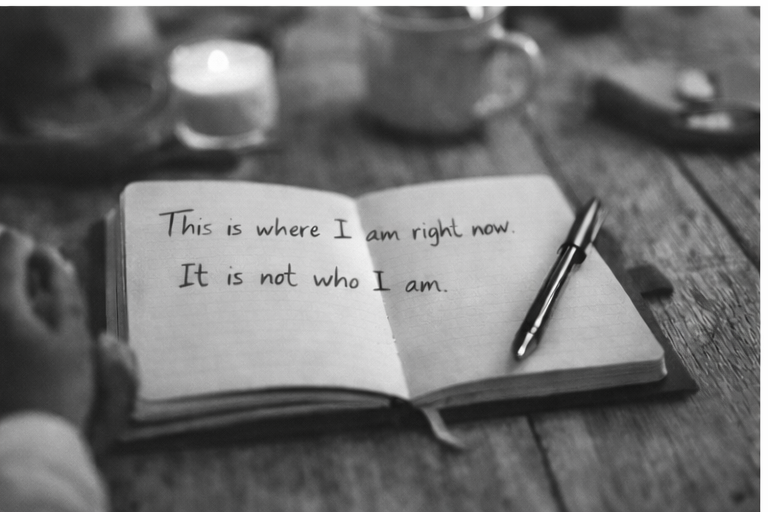 This is where I am right now.
It is not who I am.